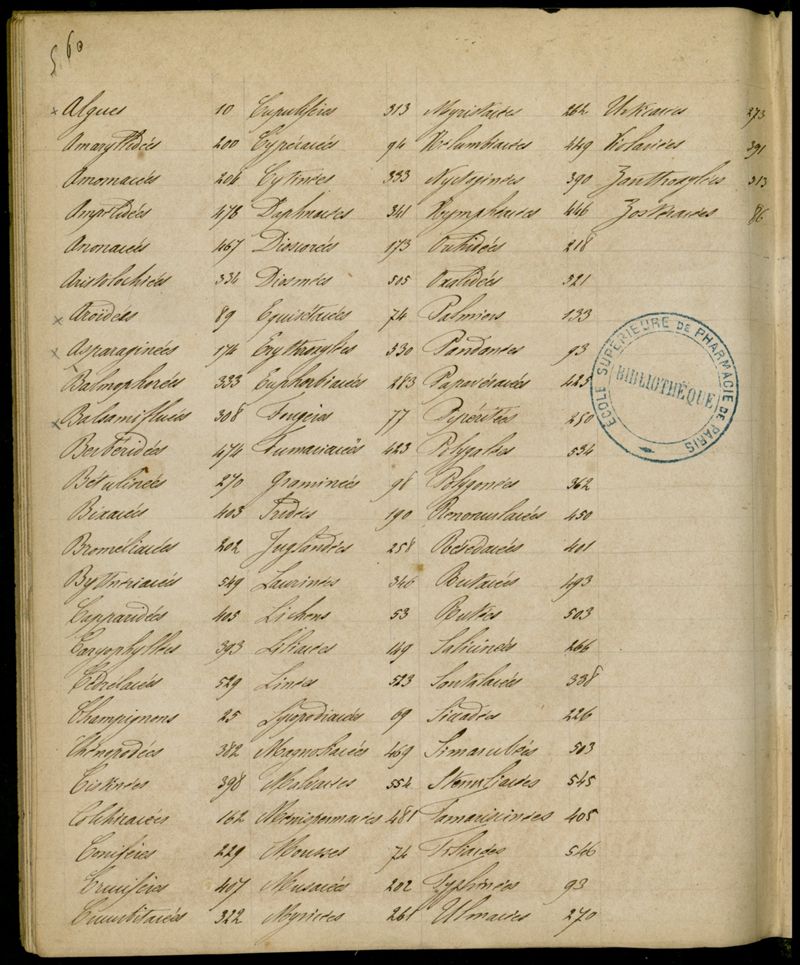 560
× Algues 10 Cupulifères 313 Myristicées 262 Urticacées 273
Amaryllidées 200 Cypéracées 94 Nélumbiacées 449 Violariées 391
Amomacées 204 Cytinées 333 Nyctaginées 390 Zanthoxylées 513
Ampélidées 478 Daphnacées 341 Nymphéacées 446 Zostéracées 86
Anonacées 467 Dioscorées 173 Orchidées 218
Aristolochiées 334 Diosmées 505 Oxalidées 521
× Aroïdées 89 Equisétacées 74 Palmiers 133
× Asparaginées 174 Erythroxylées 530 Pandanées 93
Balanophorées 333 Euphorbiacées 283 Papavéracées 425
× Balsamifluées 308 Fougères 77 Pipéritées 250
Berbéridées 474 Fumariacées 423 Polygalées 534
Bétulinées 270 Graminées 98 Polygonées 362
Bixacées 403 Iridées 190 Renonculacées 450
Broméliacées 202 Juglandées 258 Résédacées 401
Byttnériacées 549 Laurinées 346 Rutacées 493
Capparidées 405 Lichens 53 Rutées 503
Caryophyllées 393 Liliacées 149 Salicinées 266
Cédrelacées 529 Linées 523 Santalacées 338
Champignons 25 Lycopodiacées 69 Cicadées 226
Chénopodées 382 Magnoliacées 469 Simaroubées 503
Cistinées 398 Malvacées 554 Sterculiacées 545
Colchicacées 162 Ménispermacées 481 Tamariscinées 405
Conifères 229 Mousses 74 Tiliacées 546
Crucifères 407 Musacées 202 Typhinées 93
Cucurbitacées 322 Myricées 261 Ulmacées 270
ÉCOLE SUPÉRIEURE DE PHARMACIE DE PARIS
BIBLIOTHÈQUE